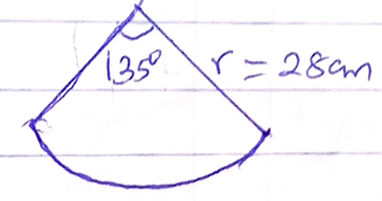 135° r = 28cm